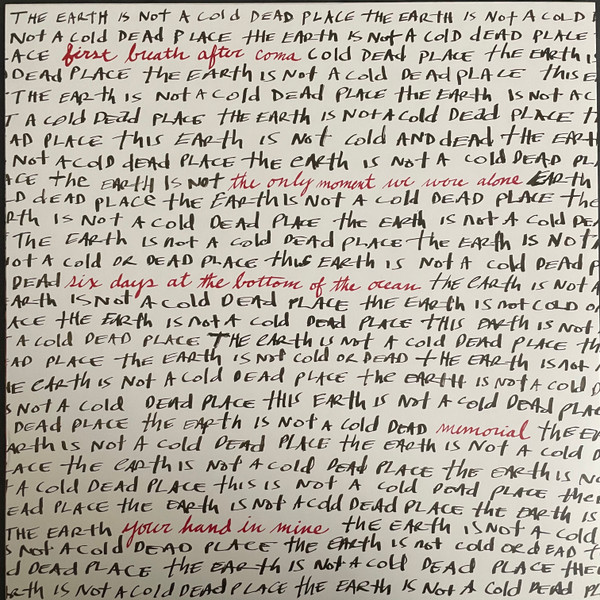 THE EARTH IS NOT A COLD DEAD PLACE THE EARTH IS NOT A COLD
NOT A COLD DEAD PLACE THE EARTH IS NOT A COLD DEAD PLACE
ACE first breath after coma COLD DEAD PLACE THE EARTH IS
DEAD PLACE THE EARTH IS NOT A COLD DEAD PLACE THIS E
THE EARTH IS NOT A COLD DEAD PLACE THE EARTH IS NOT A C
T A COLD DEAD PLACE THE EARTH IS NOT A COLD DEAD PLACE T
AD PLACE THIS EARTH IS NOT COLD AND DEAD THE EART
NOT A COLD DEAD PLACE THE EARTH IS NOT A COLD DEAD PL
ACE THE EARTH IS NOT the only moment we were alone EARTH
D DEAD PLACE THE EARTH IS NOT A COLD DEAD PLACE THE
RTH IS NOT A COLD DEAD PLACE THE EARTH IS NOT A COLD DEA
THE EARTH IS NOT A COLD DEAD PLACE THE EARTH IS NOT
NOT A COLD OR DEAD PLACE THIS EARTH IS NOT A COLD DEAD P
DEAD six days at the bottom of the ocean THE EARTH IS NOT A
EARTH IS NOT A COLD DEAD PLACE THE EARTH IS NOT COLD O
ACE THE EARTH IS NOT A COLD DEAD PLACE THIS EARTH IS NOT
A COLD DEAD PLACE THE EARTH IS NOT A COLD DEAD PLACE TH
AD PLACE THE EARTH IS NOT COLD OR DEAD THE EARTH IS NOT
HE EARTH IS NOT A COLD DEAD PLACE THE EARTH IS NOT A COLD D
S NOT A COLD DEAD PLACE THIS EARTH IS NOT A COLD DEAD PLA
DEAD PLACE THE EARTH IS NOT A COLD DEAD memorial THE EA
ARTH IS NOT A COLD DEAD PLACE THE EARTH IS NOT A COLD D
ACE THE EARTH IS NOT A COLD DEAD PLACE THE EARTH IS NO
A COLD DEAD PLACE THIS IS NOT A COLD DEAD PLACE THE
EAD PLACE THE EARTH IS NOT A COLD DEAD PLACE THE EARTH IS
THE EARTH your hand in mine THE EARTH IS NOT A COLD
S NOT A COLD DEAD PLACE THE EARTH IS NOT COLD OR DEAD T
D DEAD PLACE THE EARTH IS NOT A COLD DEAD PLACE THE E
ARTH IS NOT A COLD DEAD PLACE THE EARTH IS NOT A COLD DEAD PL